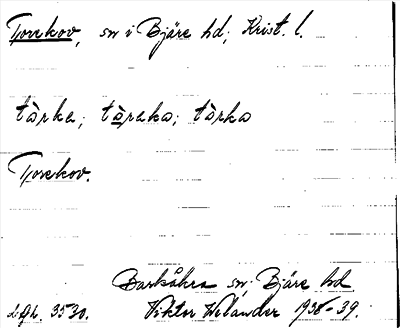 Torekov, sn i Bjäre hd; Krist. l.
tàrka; tàraka; tàrka
Torekov.
Barkåkra sn; Bjäre hd
Viktor Welander 1938-39.